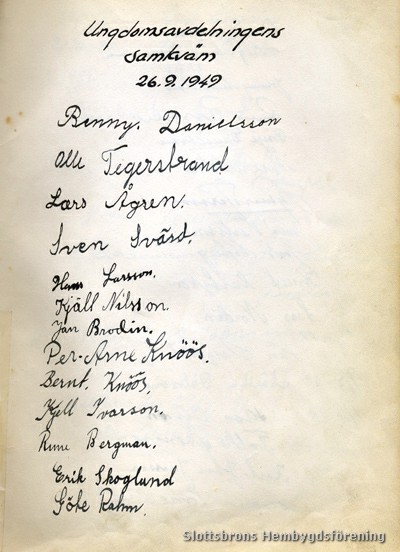 Ungdomsavdelningens
samkväm
26.9.1949
Benny. Danielsson
Olle Tegerstrand
Lars Ågren.
Sven Svärd.
Hans Larsson.
Kjäll Nilsson.
Jan Brodin.
Per-Arne Knöös.
Bernt. Knöös.
Kjell Ivarson.
Rune Bergman.
Erik Skoglund
Göte Rahm.
Slottsbrons Hembygdsförening